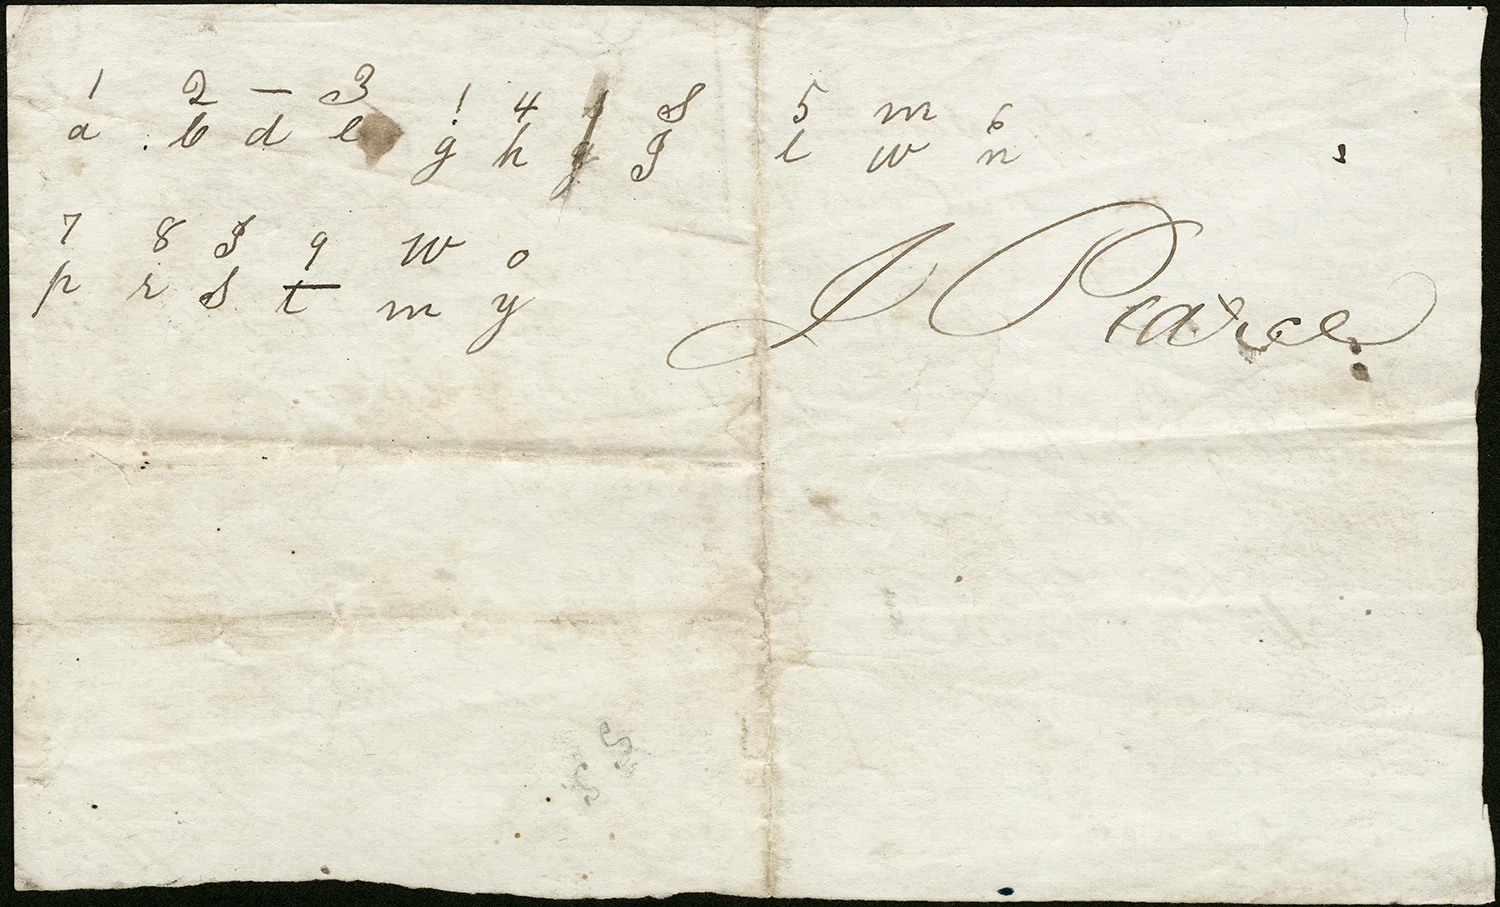 1 2 — 3 1 4 S 5 m 6
a b d e g h g I l w n
7 8 I 9 W 0
p r S t m y
J Pearce